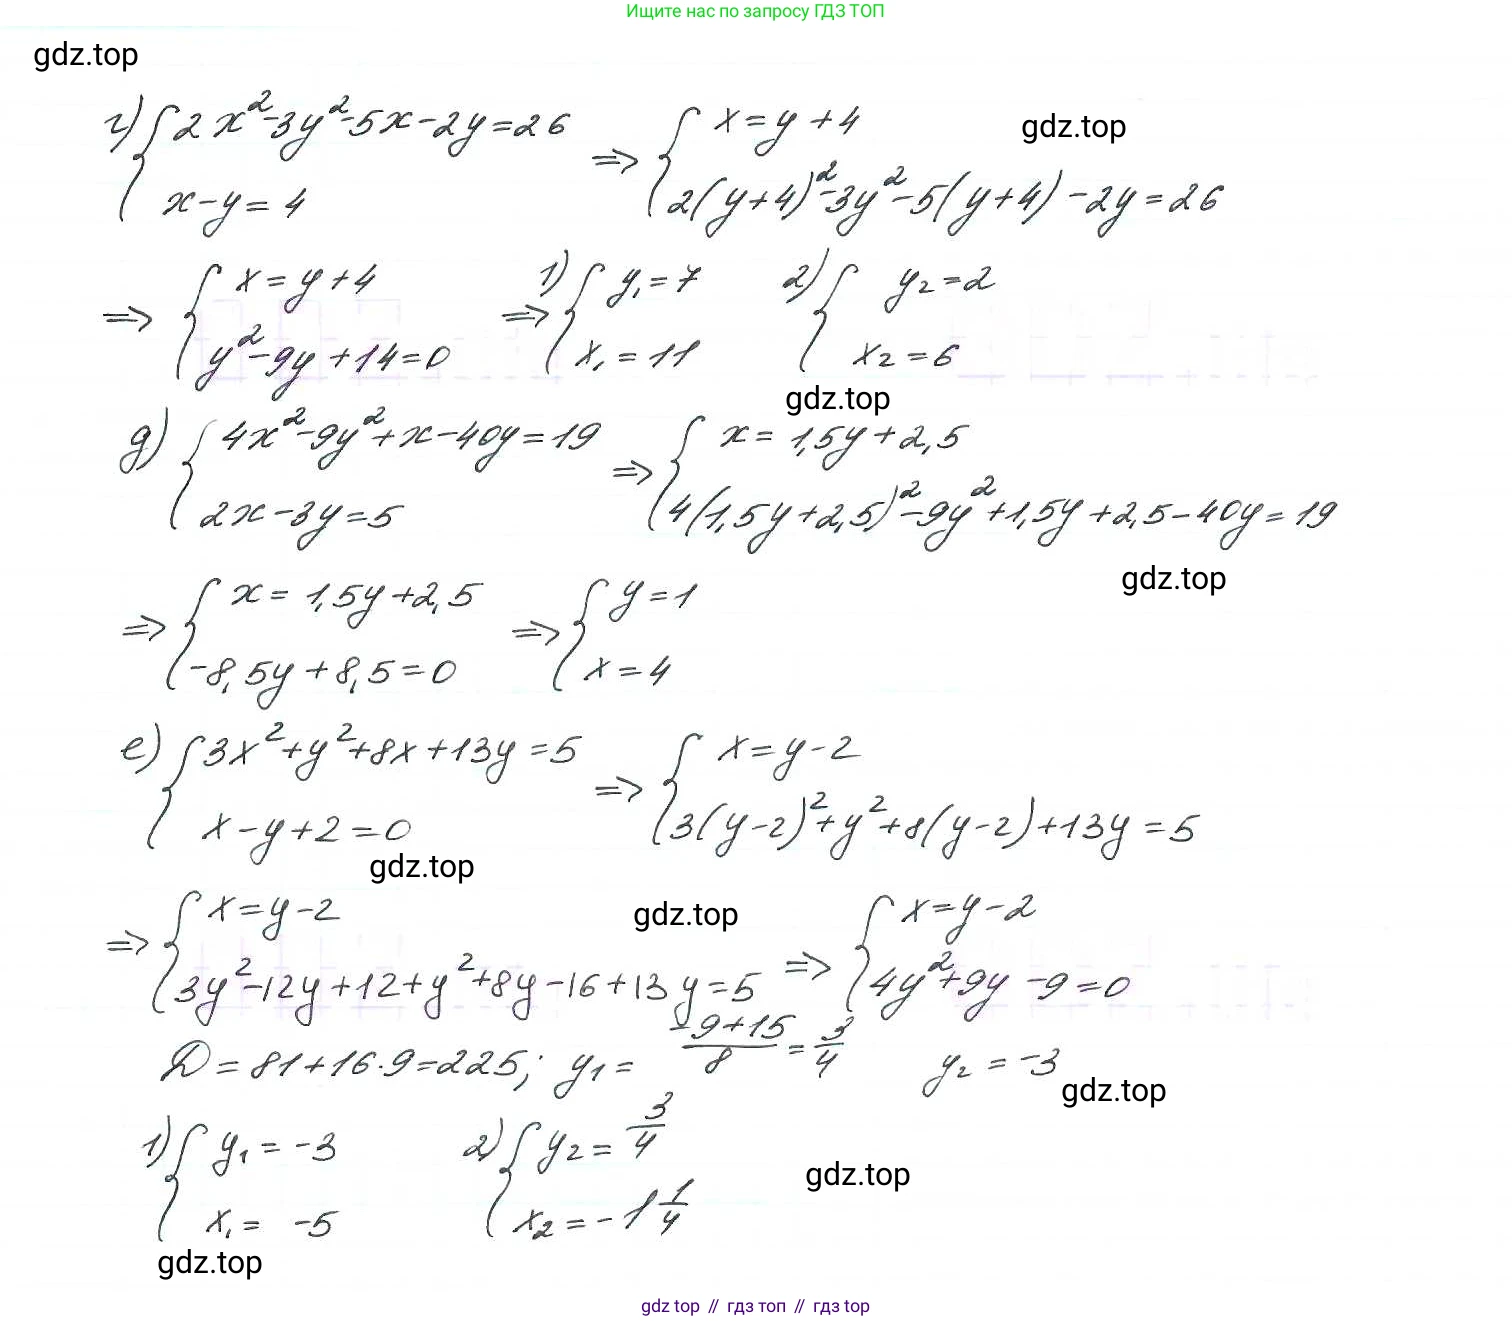 Ищите нас по запросу ГДЗ ТОП
gdz.top
г) { 2x²-3y²-5x-2y=26 => { x=y+4 gdz.top
x-y=4 2(y+4)²-3y²-5(y+4)-2y=26
=> { x=y+4 => 1) { y₁=7 2) { y₂=2
y²-9y+14=0 x₁=11 x₂=6
gdz.top
д) { 4x²-9y²+x-40y=19 => { x=1,5y+2,5
2x-3y=5 4(1,5y+2,5)²-9y²+1,5y+2,5-40y=19
gdz.top
=> { x=1,5y+2,5 => { y=1
-8,5y+8,5=0 x=4
е) { 3x²+y²+8x+13y=5 => { x=y-2
x-y+2=0 3(y-2)²+y²+8(y-2)+13y=5
gdz.top
=> { x=y-2 gdz.top => { x=y-2
3y²-12y+12+y²+8y-16+13y=5 4y²+9y-9=0
D=81+16·9=225; y₁= (-9+15)/8 = 3/4 y₂=-3
gdz.top
1) { y₁=-3 2) { y₂=3/4
gdz.top
x₁= -5 x₂=-1 1/4
gdz.top
gdz top // гдз топ // гдз top